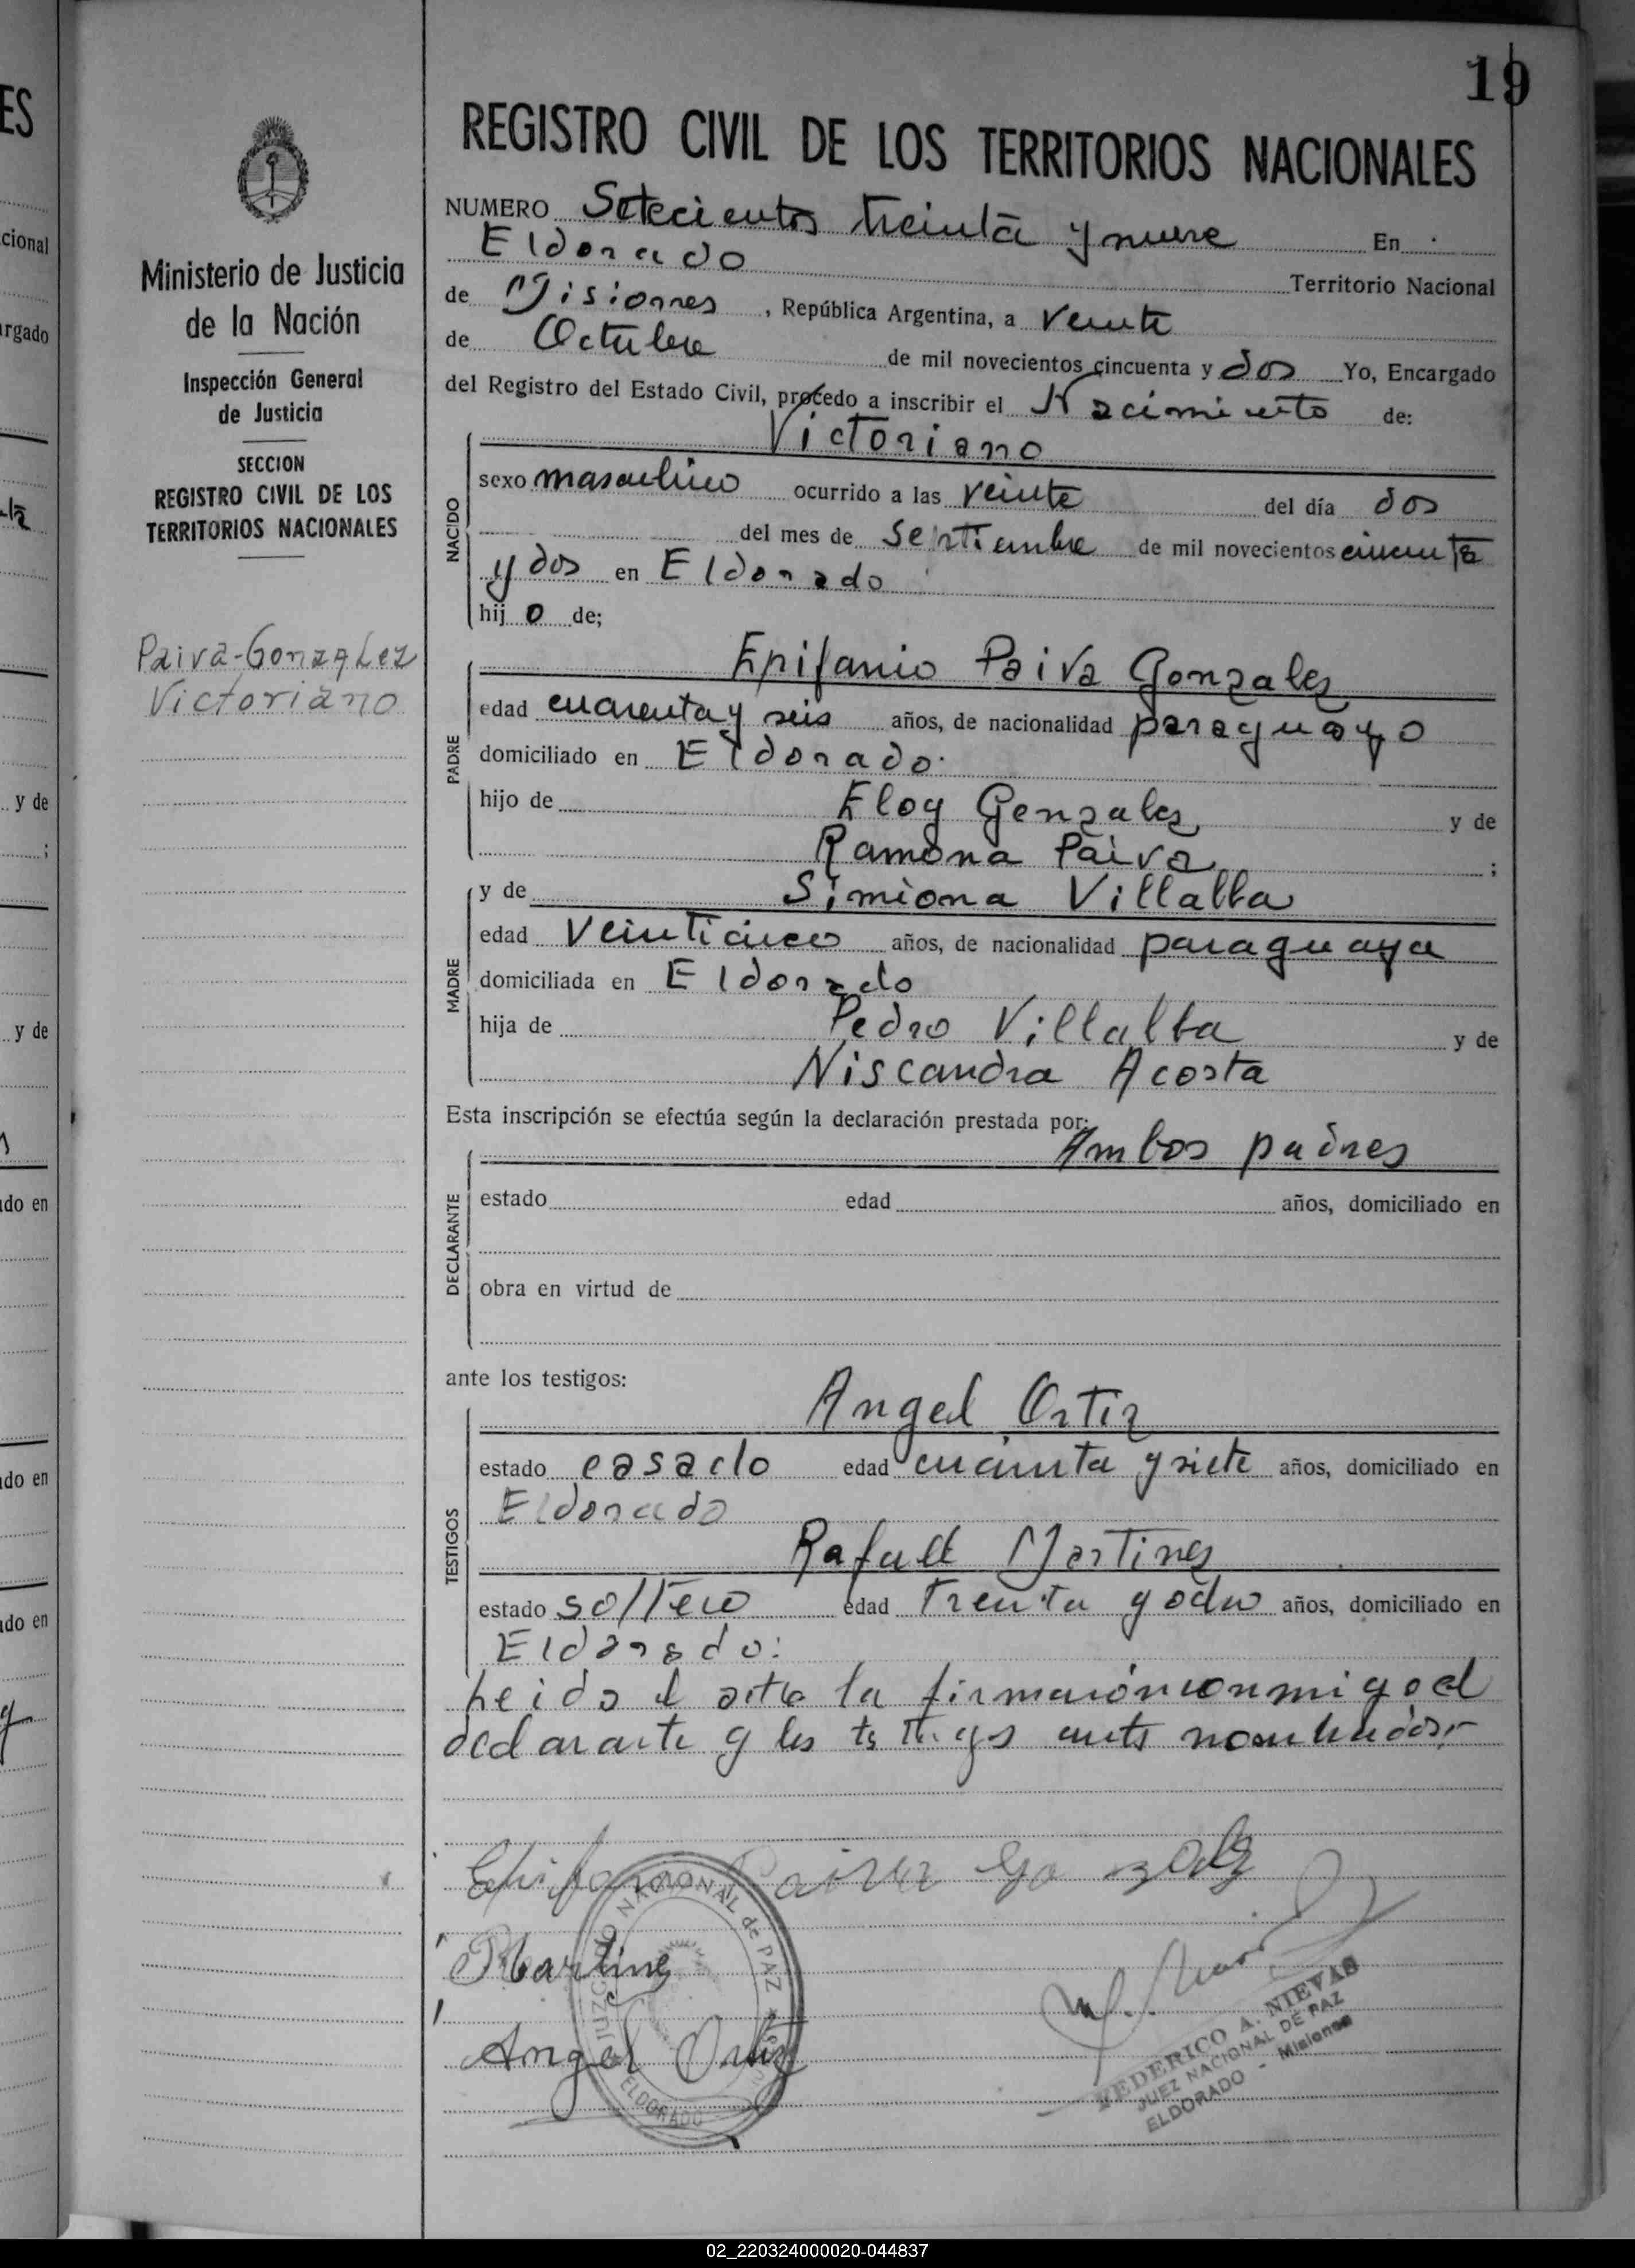 19
REGISTRO CIVIL DE LOS TERRITORIOS NACIONALES
Ministerio de Justicia
de la Nación
Inspección General
de Justicia
SECCION
REGISTRO CIVIL DE LOS
TERRITORIOS NACIONALES
Paiva-Gonzalez
Victoriano
NUMERO Setecientos treinta y nueve En
Eldorado Territorio Nacional
de Misiones, República Argentina, a veinte
de Octubre de mil novecientos cincuenta y dos Yo, Encargado
del Registro del Estado Civil, procedo a inscribir el Nacimiento de:
Victoriano
NACIDO
sexo masculino ocurrido a las veinte del día dos
del mes de Septiembre de mil novecientos cincuenta
y dos en Eldorado
hijo de;
Epifanio Paiva Gonzales
PADRE
edad cuarenta y seis años, de nacionalidad paraguayo
domiciliado en Eldorado.
hijo de Eloy Gonzales y de
Ramona Paiva ;
y de Simiona Villalba
MADRE
edad veinticinco años, de nacionalidad paraguaya
domiciliada en Eldorado
hija de Pedro Villalba y de
Niscandra Acosta
Esta inscripción se efectúa según la declaración prestada por:
Ambos padres
DECLARANTE
estado edad años, domiciliado en
obra en virtud de
ante los testigos:
Angel Ortiz
TESTIGOS
estado casado edad cuarenta y siete años, domiciliado en
Eldorado
Rafael Martines
estado soltero edad treinta y ocho años, domiciliado en
Eldorado:
Leida el acta la firmarón conmigo el
declarante y los testigos antes nombrados,-
Epifanio Paiva Gonzalez
RMartines
Angel Ortiz
JUZGADO NACIONAL de PAZ
ELDORADO
FEDERICO A. NIEVAS
JUEZ NACIONAL DE PAZ
ELDORADO - Misiones
ES
cional
rgado
y de
;
y de
do en
do en
do en
02_220324000020-044837